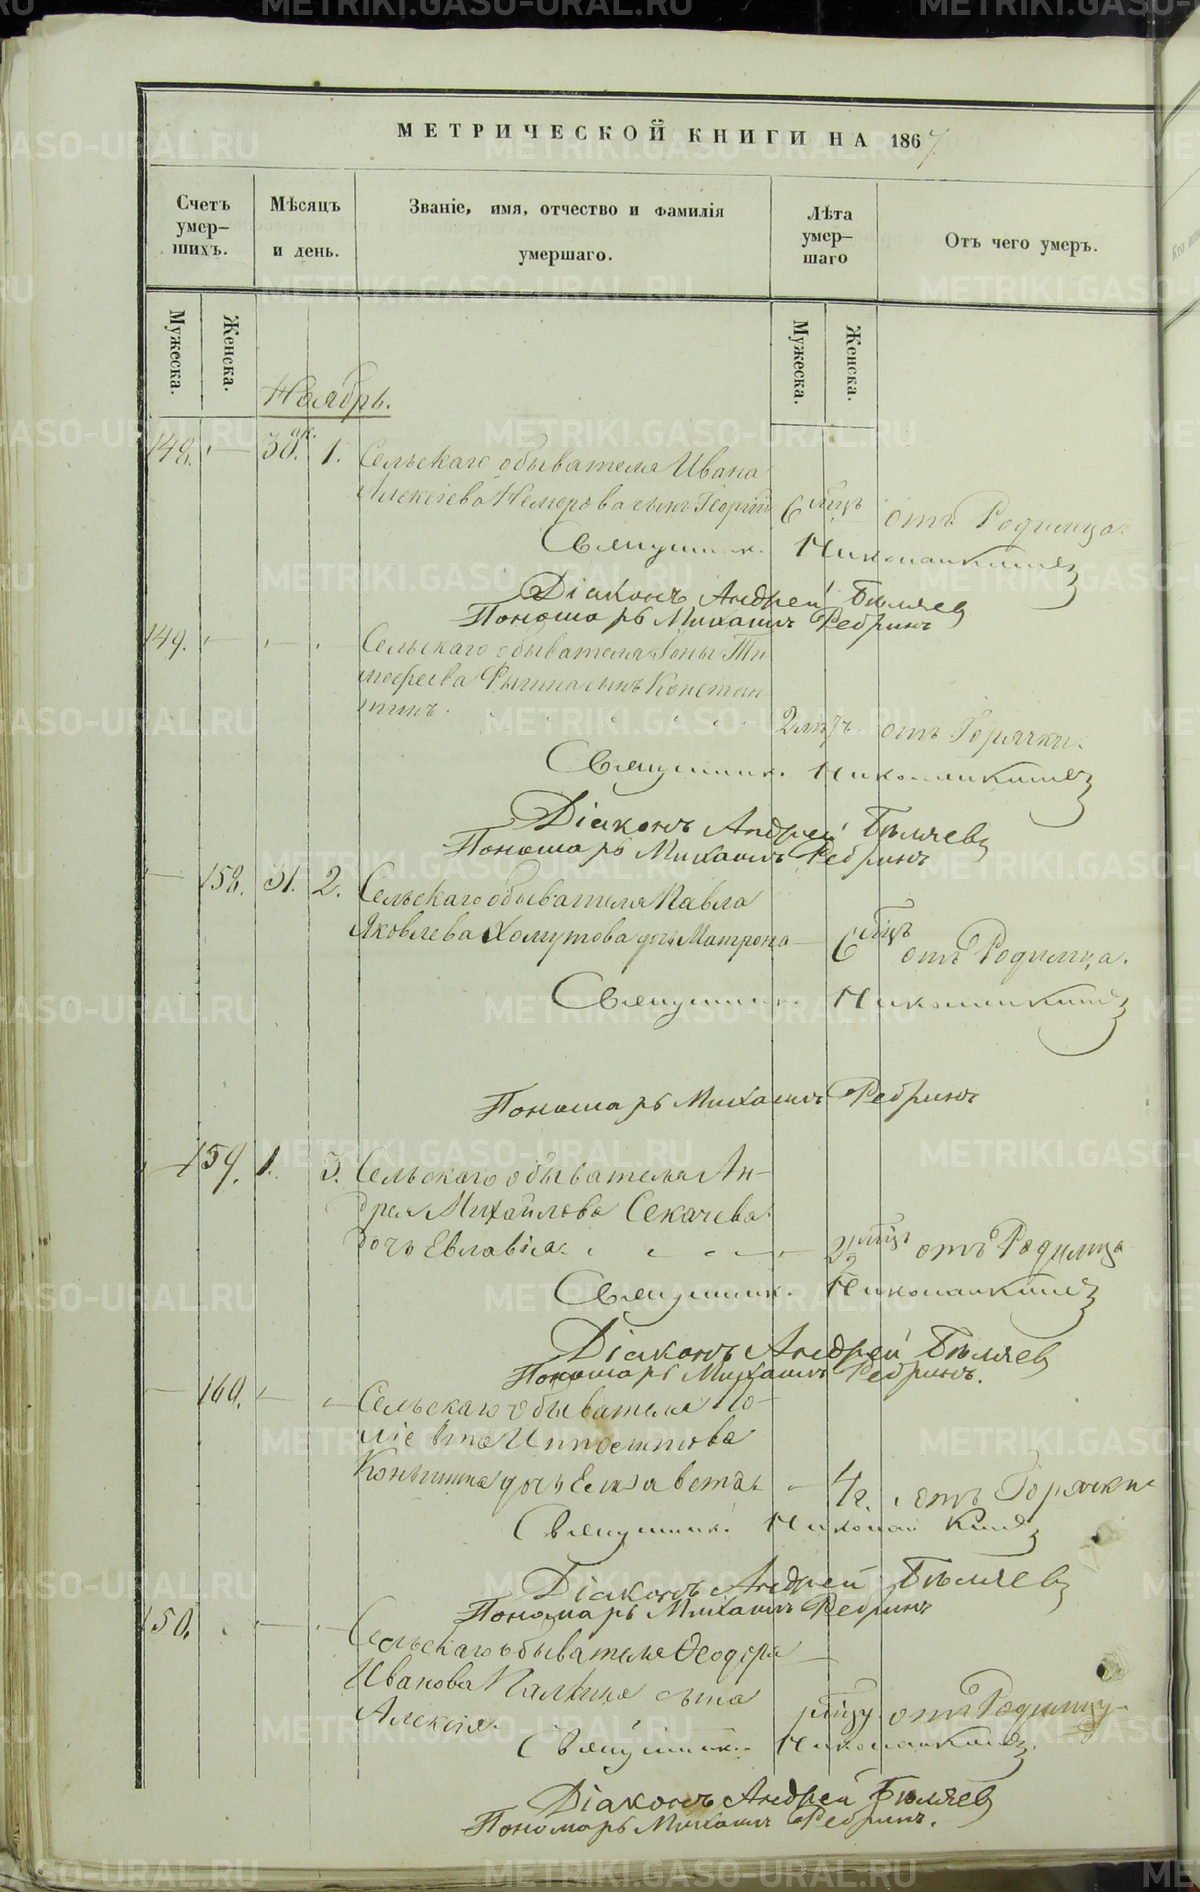 МЕТРИЧЕСКОЙ КНИГИ НА 1867.
Счетъ умер-шихъ.
Мѣсяцъ и день.
Званіе, имя, отчество и фамилія умершаго.
Лѣта умер-шаго
Отъ чего умеръ.
Мужеска.
Женска.
Мужеска.
Женска.
Ноябрь.
148. — 30. ок. 1. Сельскаго обывателя Ивана
Алексіева Немерова сынъ Георгій 6 мцъ отъ Родимца.
Священникъ Николай
Діаконъ Андрей Бѣляев
Пономарь Михаилъ Ребринъ
149. Сельскаго обывателя Іоны Ти
мофеева сынъ Констан
тинъ. 2 отъ Горячки.
Священникъ Николай
Діаконъ Андрей Бѣляев
Пономарь Михаилъ Ребринъ
— 158. 31. 2. Сельскаго обывателя Павла
Яковлева Хомутова дочь Матрона — 6 мцъ отъ Родимца.
Священникъ Николай
Пономарь Михаилъ Ребринъ
— 159. 1. 3. Сельскаго обывателя Ан-
дрея Михайлова Секачева
дочь Евлавіа. 2 мцъ отъ Родимца
Священникъ Николай
Діаконъ Андрей Бѣляев
Пономарь Михаилъ Ребринъ.
— 160. — Сельскаго обывателя
дочь Елизавета — 4 г. отъ Горячки
Священникъ Николай
Діаконъ Андрей Бѣляев
Пономарь Михаилъ Ребринъ
150. — Сельскаго обывателя Ѳеодора —
Иванова Палкина сына
Алексія. мцу отъ Родимцу
Священникъ Николай
Діаконъ Андрей Бѣляев
Пономарь Михаилъ Ребринъ.
METRIKI.GASO-URAL.RU